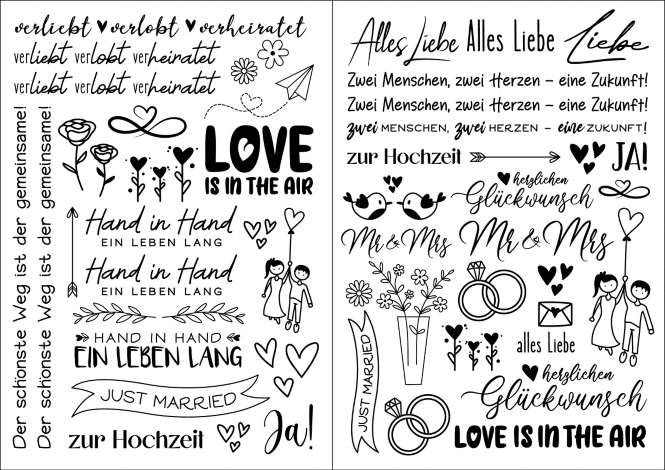 verliebt ♥ verlobt ♥ verheiratet
verliebt verlobt verheiratet
verliebt verlobt verheiratet
Der schönste Weg ist der gemeinsame!
Der schönste Weg ist der gemeinsame!
LOVE
IS IN THE AIR
Hand in Hand
EIN LEBEN LANG
Hand in Hand
EIN LEBEN LANG
HAND IN HAND
EIN LEBEN LANG
JUST MARRIED
zur Hochzeit
Ja!
Alles Liebe Alles Liebe Liebe
Zwei Menschen, zwei Herzen – eine Zukunft!
Zwei Menschen, zwei Herzen – eine Zukunft!
zwei MENSCHEN, zwei HERZEN – eine ZUKUNFT!
zur Hochzeit
JA!
herzlichen
Glückwunsch
Mr & Mrs
Mr & Mrs
JUST MARRIED
alles Liebe
herzlichen
Glückwunsch
LOVE IS IN THE AIR